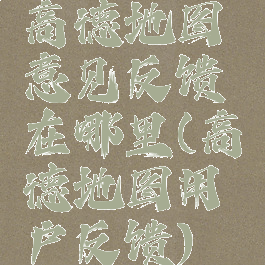 高德地图
意见反馈
在哪里(高
德地图用
户反馈)